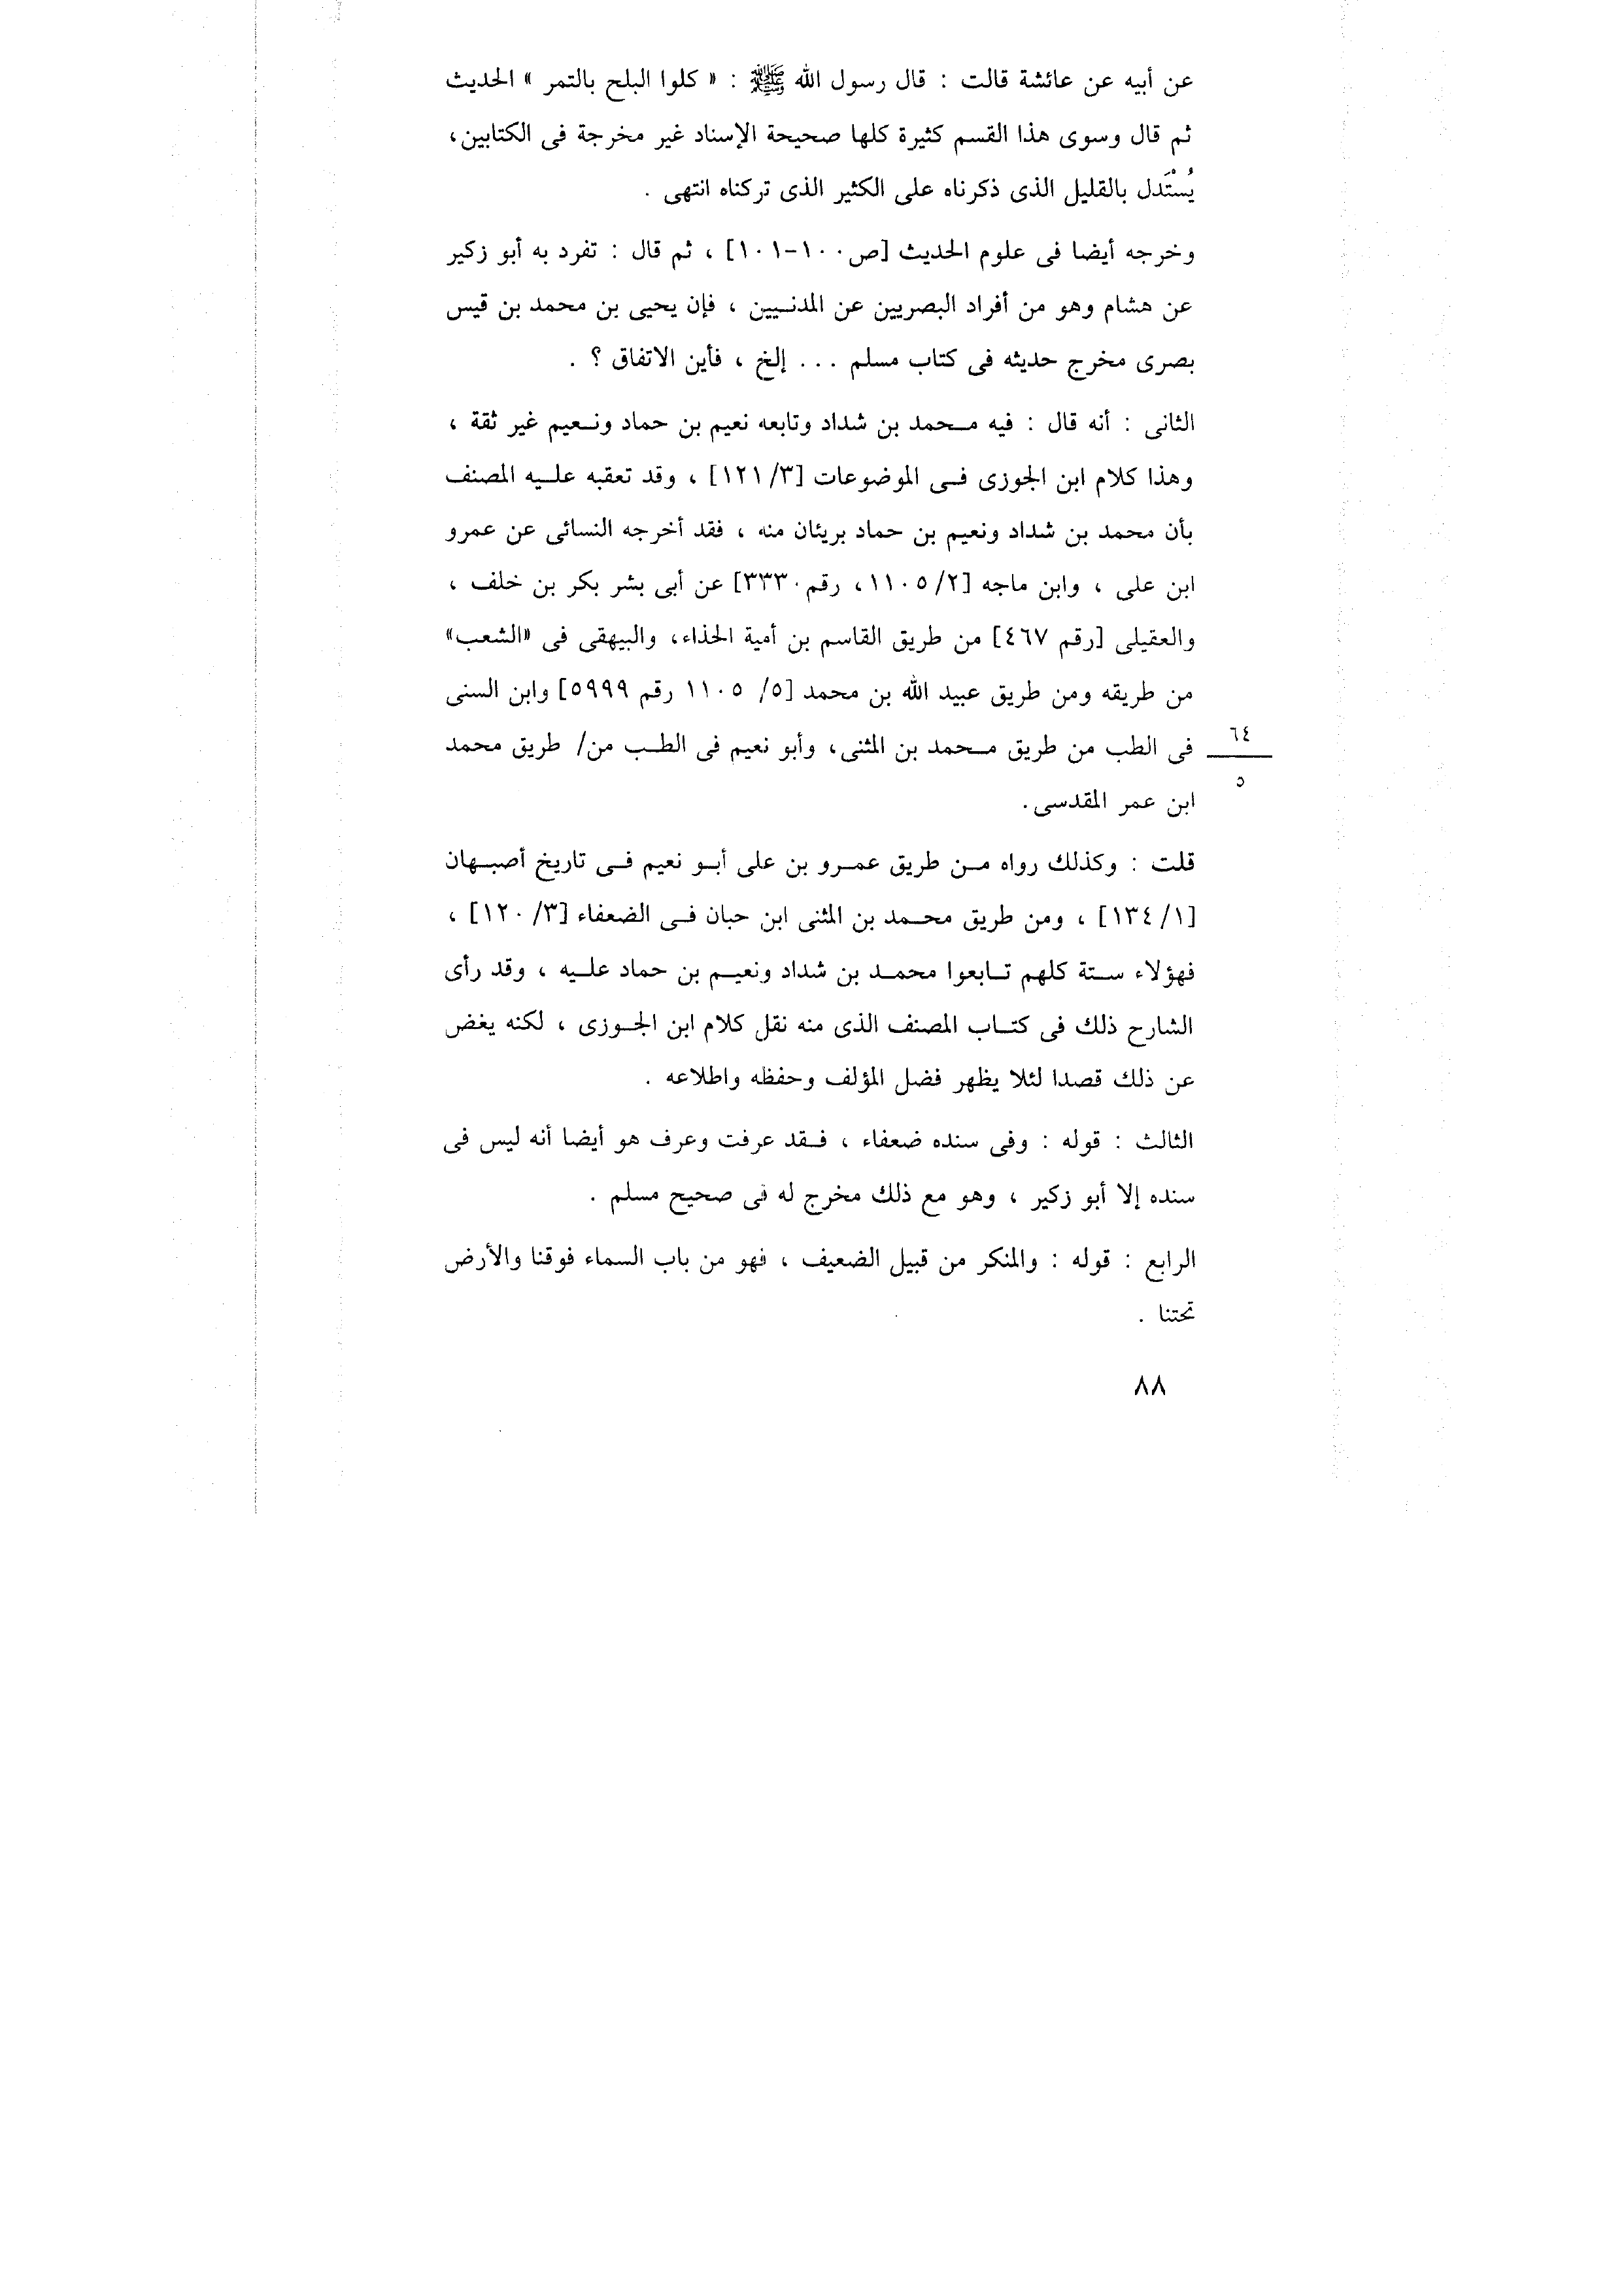 عن أبيه عن عائشة قالت : قال رسول الله ﷺ : « كلوا البلح بالتمر » الحديث
ثم قال وسوى هذا القسم كثيرة كلها صحيحة الإسناد غير مخرجة فى الكتابين،
يُسْتَدل بالقليل الذى ذكرناه على الكثير الذى تركناه انتهى .
وخرجه أيضا فى علوم الحديث [ص١٠٠-١٠١] ، ثم قال : تفرد به أبو زكير
عن هشام وهو من أفراد البصريين عن المدنـيين ، فإن يحيى بن محمد بن قيس
بصرى مخرج حديثه فى كتاب مسلم ... إلخ ، فأين الاتفاق ؟ .
الثانى : أنه قال : فيه مـحمد بن شداد وتابعه نعيم بن حماد ونـعيم غير ثقة ،
وهذا كلام ابن الجوزى فـى الموضوعات [٣/ ١٢١] ، وقد تعقبه علـيه المصنف
بأن محمد بن شداد ونعيم بن حماد بريئان منه ، فقد أخرجه النسائى عن عمرو
ابن على ، وابن ماجه [٢/ ١١٠٥، رقم ٣٣٣٠] عن أبى بشر بكر بن خلف ،
والعقيلى [رقم ٤٦٧] من طريق القاسم بن أمية الحذاء، والبيهقى فى «الشعب»
من طريقه ومن طريق عبيد الله بن محمد [٥/ ١١٠٥ رقم ٥٩٩٩] وابن السنى
فى الطب من طريق مـحمد بن المثنى، وأبو نعيم فى الطـب من/ طريق محمد
٦٤
٥
ابن عمر المقدسى.
قلت : وكذلك رواه مـن طريق عمـرو بن على أبـو نعيم فـى تاريخ أصبـهان
[١/ ١٣٤] ، ومن طريق محـمد بن المثنى ابن حبان فـى الضعفاء [٣/ ١٢٠] ،
فهؤلاء سـتة كلهم تـابعوا محمـد بن شداد ونعيـم بن حماد علـيه ، وقد رأى
الشارح ذلك فى كتـاب المصنف الذى منه نقل كلام ابن الجـوزى ، لكنه يغض
عن ذلك قصدا لئلا يظهر فضل المؤلف وحفظه واطلاعه .
الثالث : قوله : وفى سنده ضعفاء ، فـقد عرفت وعرف هو أيضا أنه ليس فى
سنده إلا أبو زكير ، وهو مع ذلك مخرج له فى صحيح مسلم .
الرابع : قوله : والمنكر من قبيل الضعيف ، فهو من باب السماء فوقنا والأرض
تحتنا .
٨٨